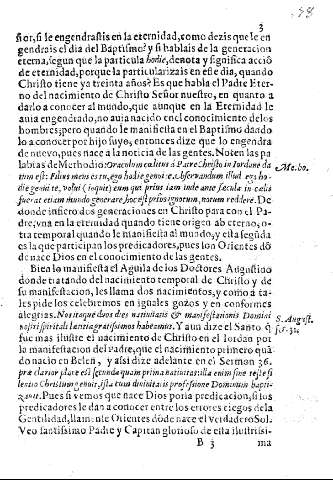 3
58
ñor, si le engendrastis en la eternidad, como dezis que le en
gendrais el dia del Baptismo? y si hablais de la generacion
eterna, segun que la particula hodie, denota y significa acciõ
de eternidad, porque la particularizais en este dia, quando
Christo tiene ya treinta años? Es que habla el Padre Eter-
no del nacimiento de Christo Señor nuestro, en quanto a
darlo a conocer al mundo, que aunque en la Eternidad le
auia engendrado, no auia nacido en el conocimiento de los
hombres; pero quando le manifiesta en el Baptismo dando
lo a conocer por hijo suyo, entonces dize que lo engendra
de nuevo, pues nace a la noticia de las gentes. Noten las pa
labras de Methodio: Oraculum cælitus à Patre Christo in Iordane da
tum est: Filius meus es tu, ego hodie genui te. Observandum illud ego ho-
die genui te, volui (inquit) eum qui prius iam inde ante sæcula in cælis
fuerat etiam mundo generare, hoc est prius ignotum, notum reddere. De
donde infiero dos generaciones en Christo para con el Pa
dre, vna en la eternidad quando tiene origen ab eterno, o-
tra temporal quando le manifiesta al mundo, y esta segũda
es la que participan los predicadores, pues son Orientes dõ
de nace Dios en el conocimiento de las gentes.
Metho.
Bien lo manifiesta el Aguila de los Doctores Agustino
donde tratando del nacimiento temporal de Christo y de
su manifestacion, les llama dos nacimientos, y como à ta-
les pide los celebremos en iguales gozos y en conformes
alegrias. Nos itaque duos dies natiuitatis & manifestationis Domini
nostri spiritali lætitia gratissimos habeamus. Y aun dize el Santo q̃
fue mas ilustre el nacimiento de Christo en el Iordan por
la manifestacion del Padre, que el nacimiento primero quã
do nacio en Belen, y assi dize adelante en el Sermon 36.
præclarior plane est secunda quam prima natiuitas: illa enim sine teste si
lentio Christum genuit, ista cum diuinitatis professione Dominum bapti-
zauit. Pues si vemos que nace Dios por la predicacion, si los
predicadores le dan a conocer entre los errores ciegos de la
Gentilidad, llamenle Orientes dõde nace el verdadero Sol.
Veo santissimo Padre y Capitan glorioso de esta ilustrissi-
S. August.
B 3
ma